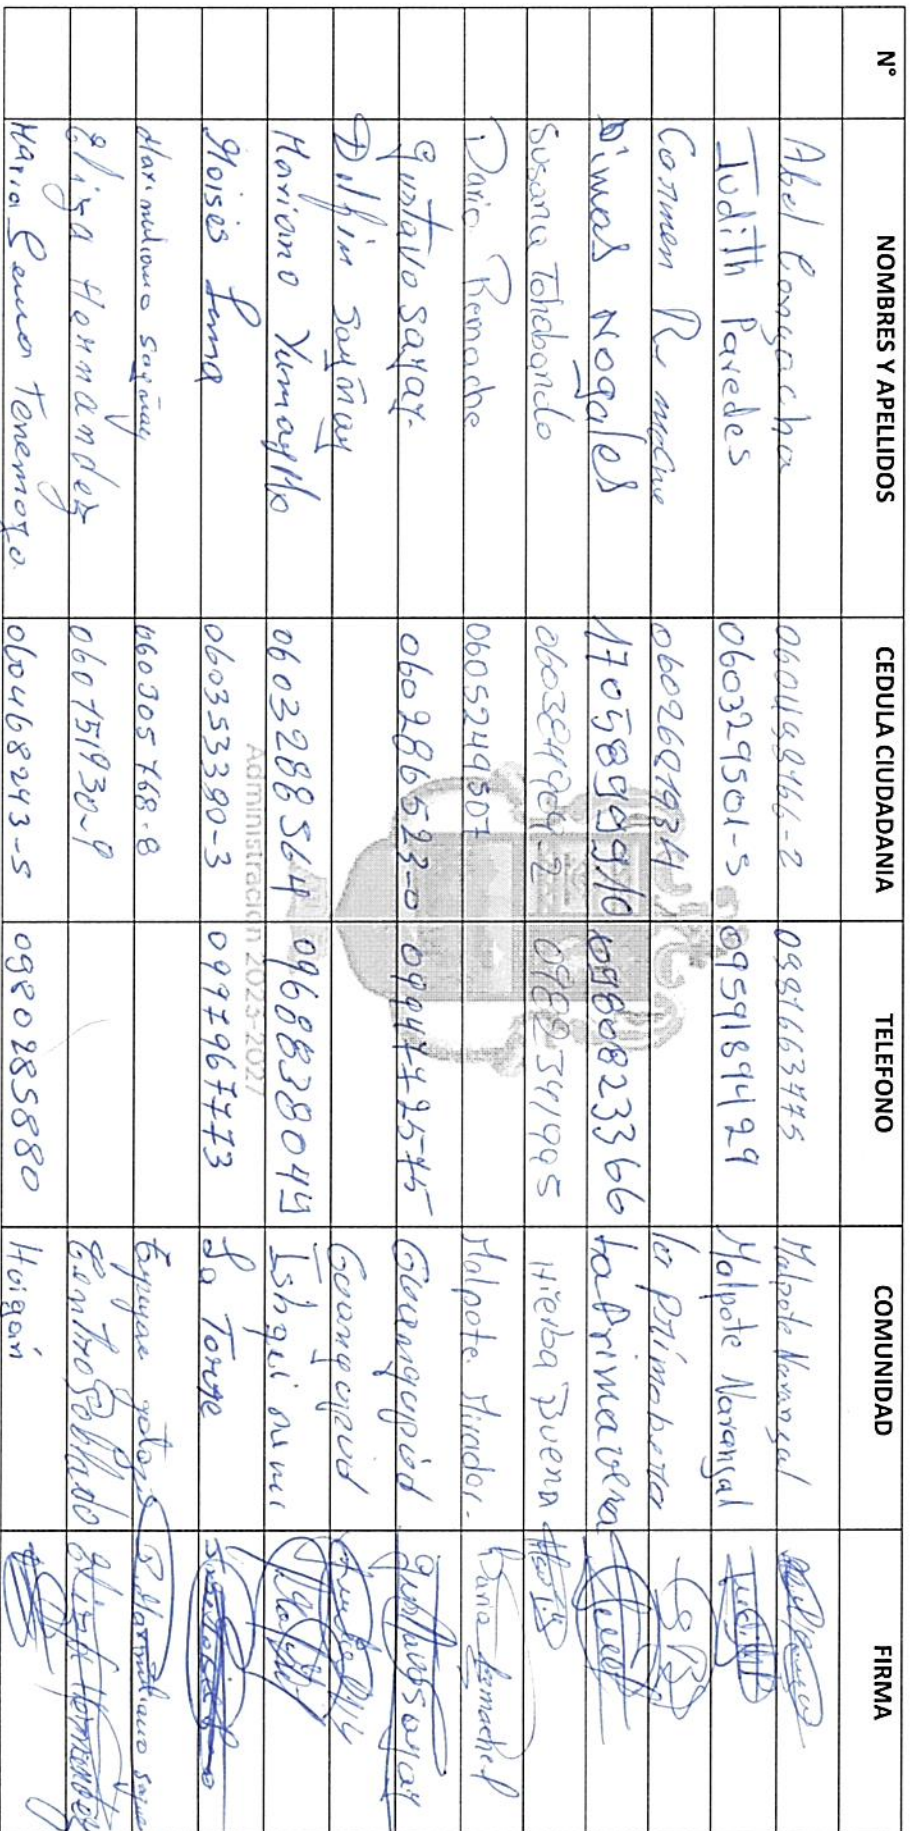 N° NOMBRES Y APELLIDOS CEDULA CIUDADANIA TELEFONO COMUNIDAD FIRMA
Abel Congacha 0604198466-2 Malpote Naranjal
Judith Paredes 060329501-5 0959189429 Malpote Naranjal
Carmen R 0602609934 la Primabera
Dimas Nogales 1705899910 0980823366 La Primavera
Susana Tohabando 0982341995 Hierba Buena
Dario Remache 0605249507 Malpote Mirador. Dario Remache
Gustavo Sayay. 060286523-0 0994742575 Guangopud Gustavo Sayay
Delfin Sayñay Guangopud
Mariano Yumayllo 0603288564 0968838049
Moises Lema 060353380-3 0997967773 La Torre
Maximiliano Sayñay 060305768-8
Eliza Hernandez 060151930-9 Centro Poblado Eliza Hernandez
Maria Lema Tenemaza. 060468243-5 0980285880 Huigan
Administración 2023-2027